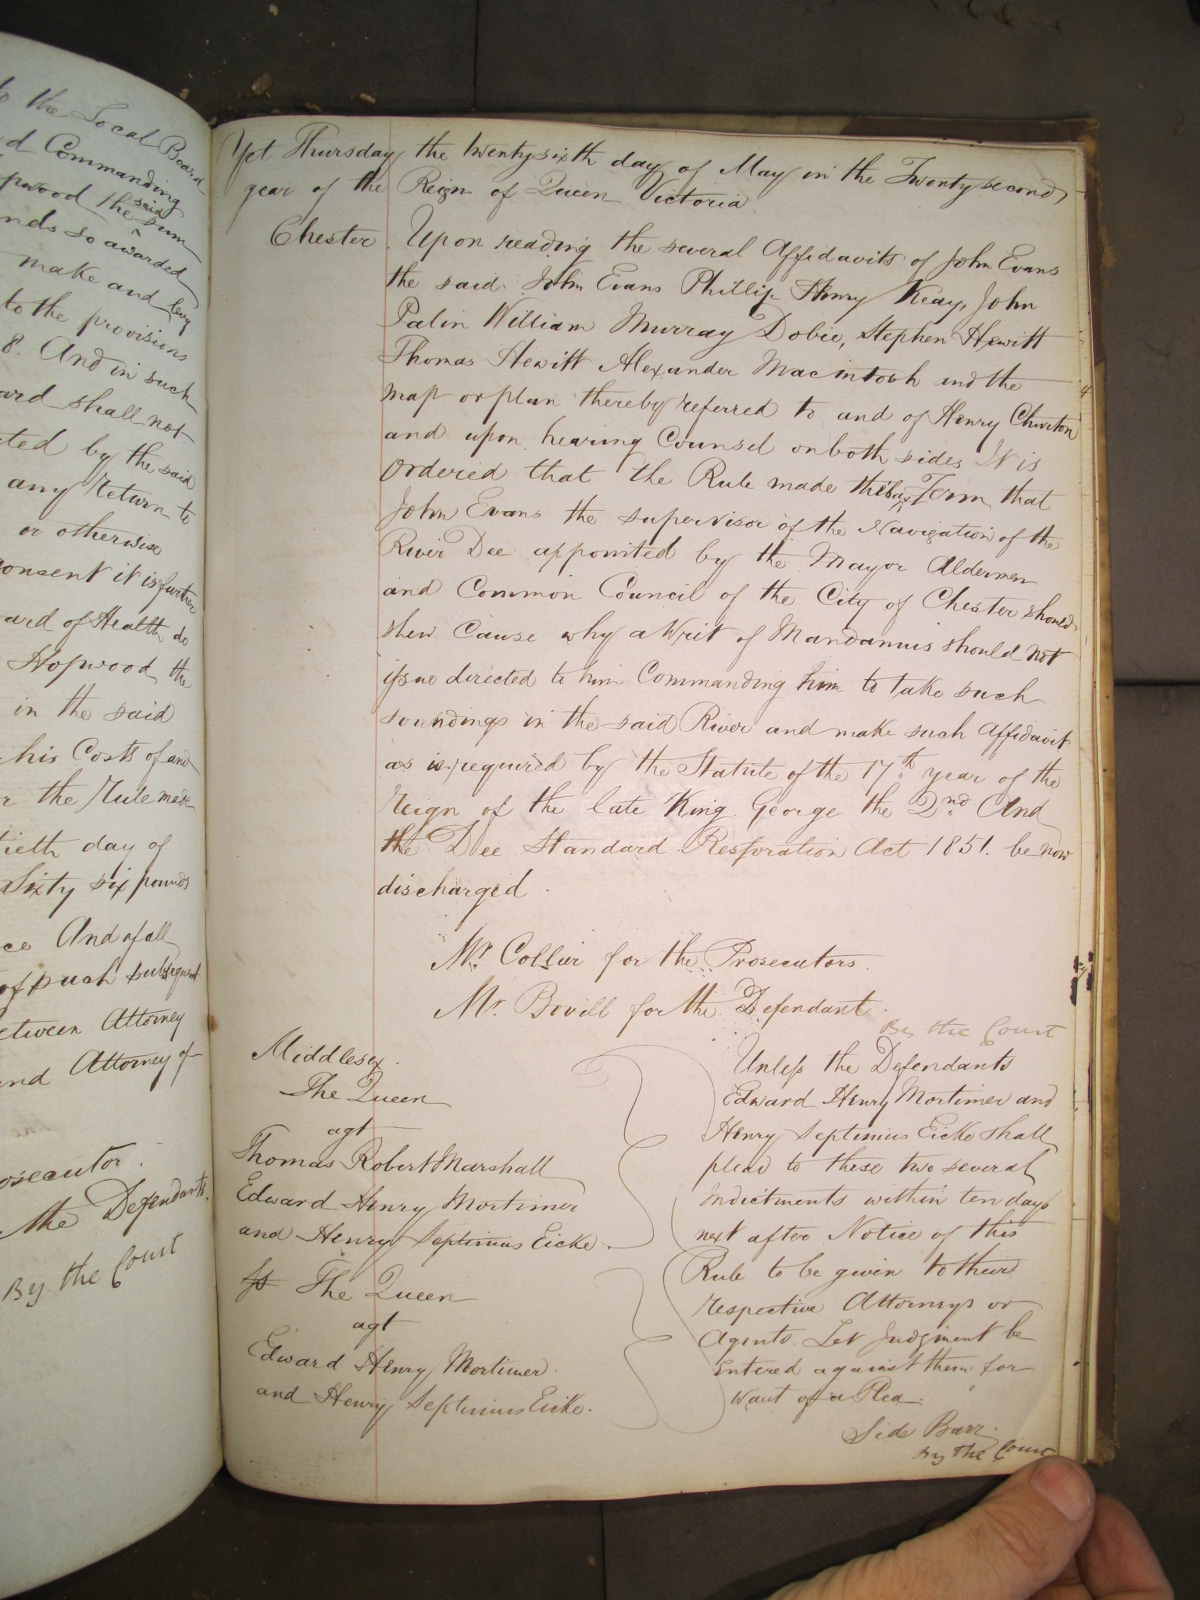 to the Local Board
d Commanding
pwood the said sum
nds so awarded
make and levy
to the provisions
8. And in such
ard shall not
cted by the said
any Return to
or otherwise
consent it is further
ard of Health do
Hopwood the
in the said
his Costs of and
r the Rule made
tieth day of
Sixty six pounds
ce And of all
of such subsequent
etween Attorney
and Attorney of
osecutor.
the Defendants.
By the Court
Yet Thursday the Twenty sixth day of May in the Twenty second
year of the Reign of Queen Victoria
Chester. Upon reading the several Affidavits of John Evans
the said John Evans Phillip Henry Keay, John
Palin William Murray Dobie, Stephen Hewitt
Thomas Hewitt Alexander Macintosh and the
map or plan thereby referred to and of Henry Churton
and upon hearing Counsel on both sides It is
Ordered that the Rule made this Term that
John Evans the supervisor of the Navigation of the
River Dee appointed by the Mayor Aldermen
and Common Council of the City of Chester should
shew Cause why a Writ of Mandamus should not
issue directed to him Commanding him to take such
soundings in the said River and make such Affidavit
as is required by the Statute of the 17th year of the
Reign of the late King George the 2nd And
the Dee Standard Restoration Act 1851. be now
discharged.
Mr. Collier for the Prosecutors.
Mr. Bovill for the Defendant.
By the Court
Middlesex.
The Queen
agt
Thomas Robert Marshall
Edward Henry Mortimer
and Henry Septimus Eicke.
The Queen
agt
Edward Henry Mortimer.
and Henry Septimus Eicke.
Unless the Defendants
Edward Henry Mortimer and
Henry Septimus Eicke shall
plead to these two several
Indictments within ten days
next after Notice of this
Rule to be given to their
respective Attorneys or
Agents. Let Judgment be
Entered against them for
want of a Plea.
Side Barr.
By the Court